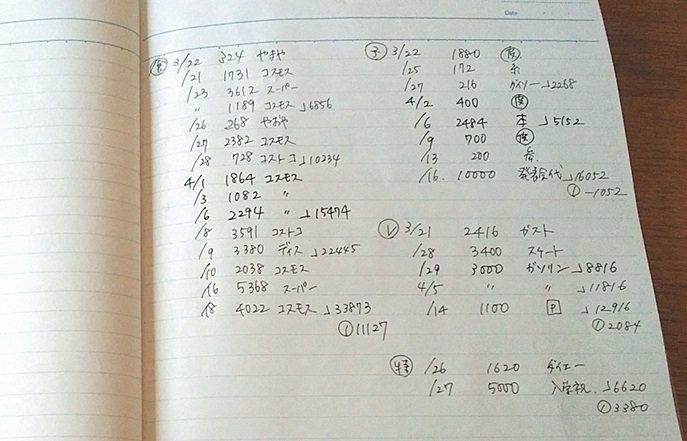 Date
食 3/22 324 やおや
/21 1731 コスモス
/23 3612 スーパー
〃 1189 コスモス 」6856
/26 268 やおや
/27 2382 コスモス
/28 728 コストコ 」10234
4/1 1864 コスモス
/3 1082 〃
/6 2294 〃 」15474
/8 3591 コストコ
/9 3380 ディス 」22445
/10 2038 コスモス
/16 5368 スーパー
/18 4022 コスモス 」33873
11127
子 3/22 1880
/25 172 糸
/27 216 ダイソー 」2268
4/2 400
/6 2484 本 」5152
/9 700
/13 200
/16 10000 発表会代 」16052
-1052
レ 3/21 2416 ガスト
/28 3400 スケート
/29 3000 ガソリン 」8816
4/5 〃 〃 」11816
/14 1100 P 」12916
2084
特 /26 1620 ダイエー
/27 5000 入学祝 」6620
3380